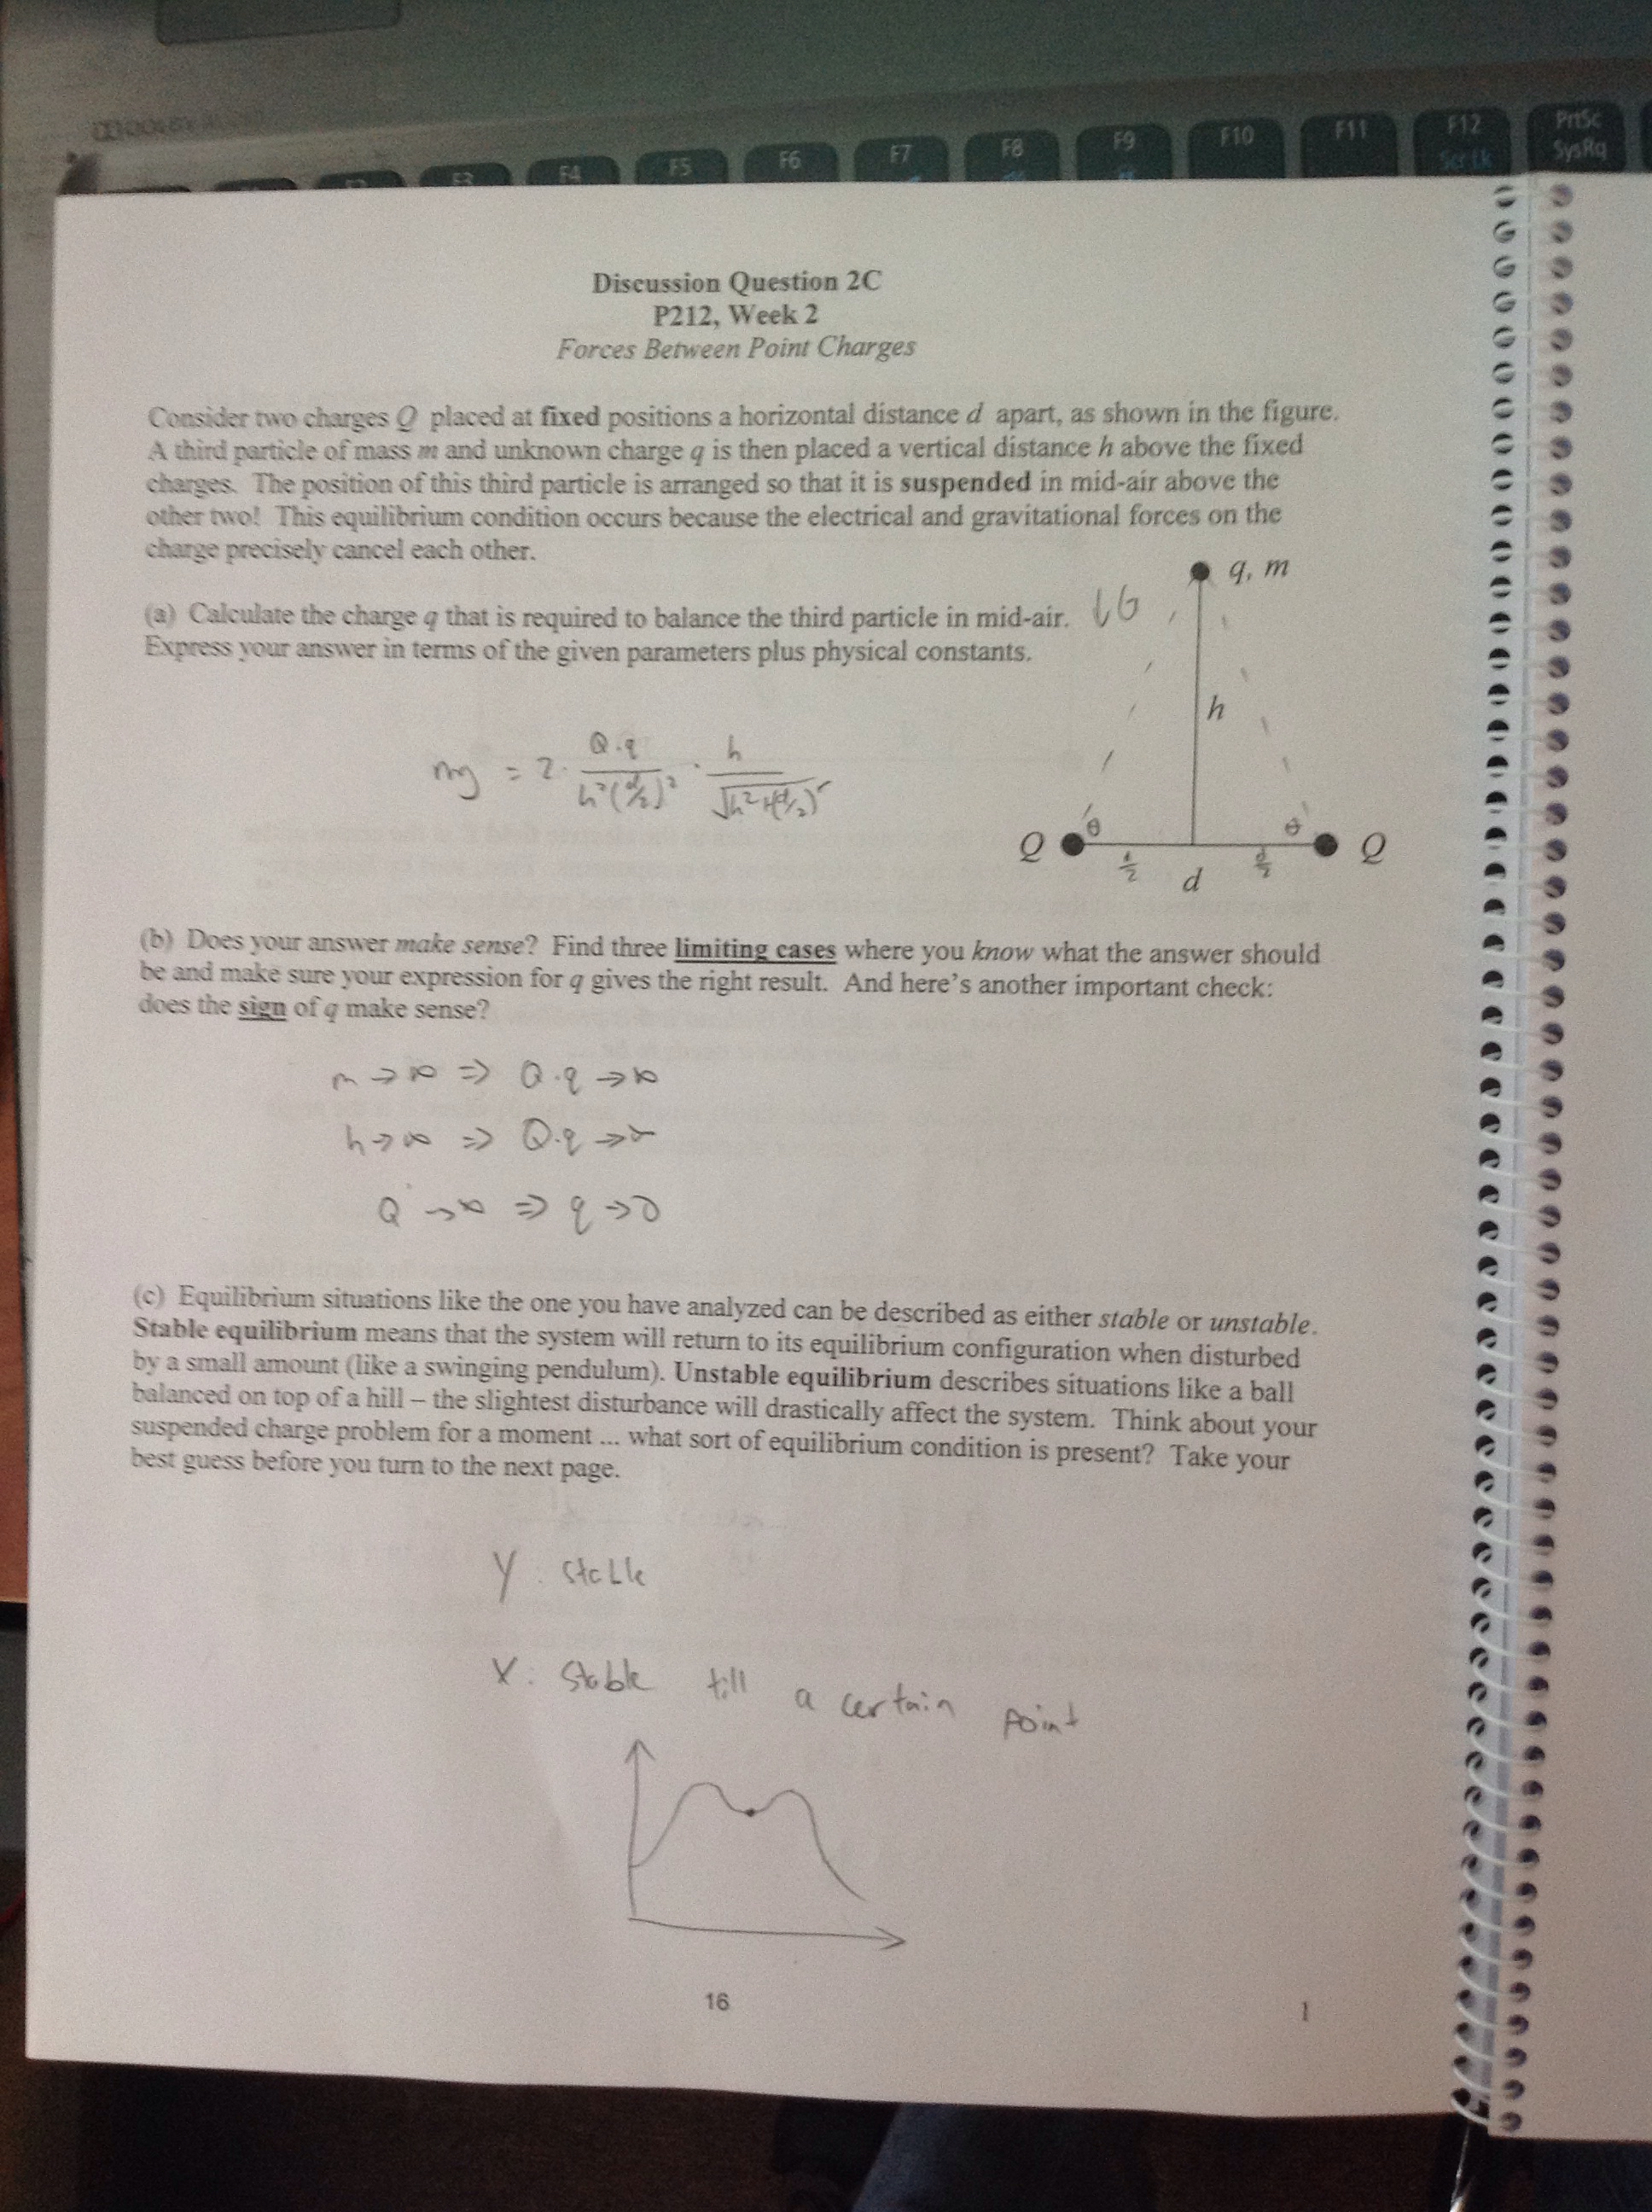 F3 F4 F5 F6 F7 F8 F9 F10 F11 F12 PrtSc
SysRq
Discussion Question 2C
P212, Week 2
Forces Between Point Charges
Consider two charges Q placed at fixed positions a horizontal distance d apart, as shown in the figure.
A third particle of mass m and unknown charge q is then placed a vertical distance h above the fixed
charges. The position of this third particle is arranged so that it is suspended in mid-air above the
other two! This equilibrium condition occurs because the electrical and gravitational forces on the
charge precisely cancel each other.
q, m
(a) Calculate the charge q that is required to balance the third particle in mid-air.
Express your answer in terms of the given parameters plus physical constants.
h
mg = 2 · Q·q / h²(d/2)² · h / √h²+(d/2)²
Q θ θ Q
d/2 d/2
d
(b) Does your answer make sense? Find three limiting cases where you know what the answer should
be and make sure your expression for q gives the right result. And here's another important check:
does the sign of q make sense?
m → ∞ ⇒ Q·q → ∞
h → ∞ ⇒ Q·q → ∞
Q → ∞ ⇒ q → 0
(c) Equilibrium situations like the one you have analyzed can be described as either stable or unstable.
Stable equilibrium means that the system will return to its equilibrium configuration when disturbed
by a small amount (like a swinging pendulum). Unstable equilibrium describes situations like a ball
balanced on top of a hill – the slightest disturbance will drastically affect the system. Think about your
suspended charge problem for a moment ... what sort of equilibrium condition is present? Take your
best guess before you turn to the next page.
Y: stable
X: Stable till a certain point
16
1